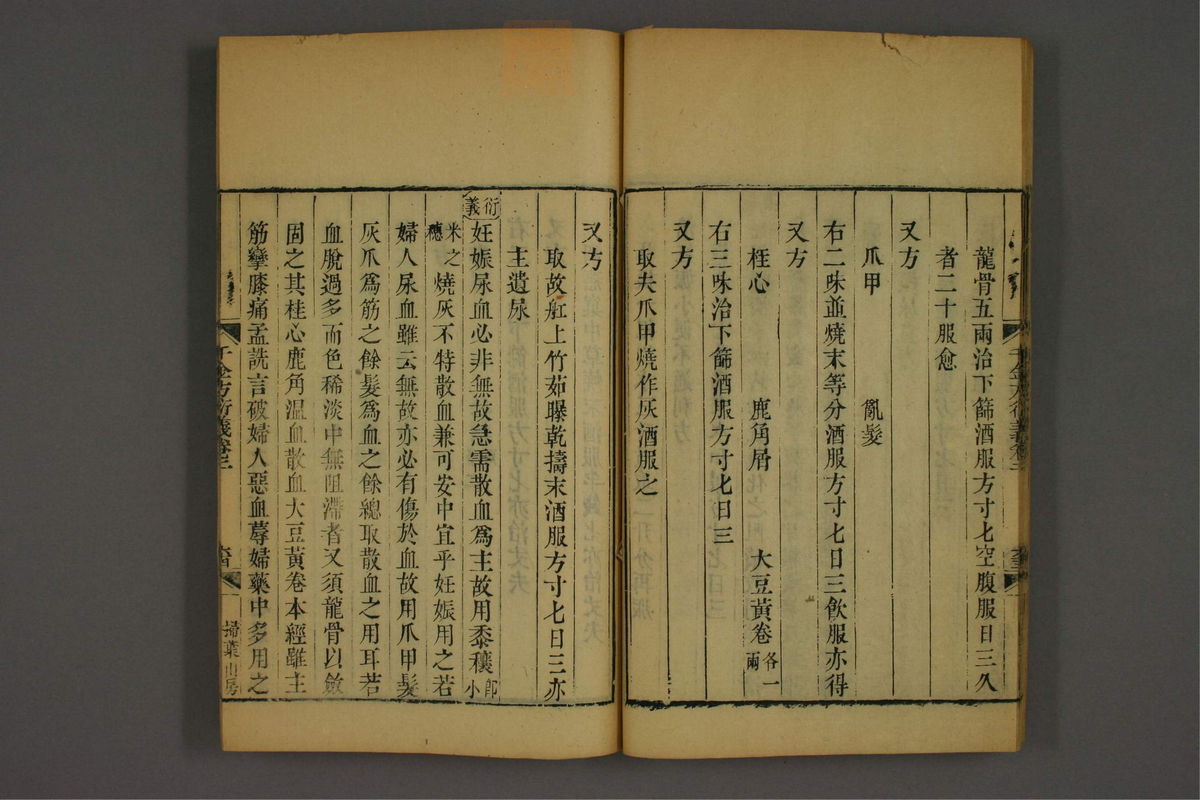 龍骨五兩治下篩酒服方寸匕空腹服日三久
者二十服愈
又方
爪甲　亂髮
右二味並燒末等分酒服方寸匕日三飲服亦得
又方
桂心　鹿角屑　大豆黃卷各一兩
右三味治下篩酒服方寸匕日三
又方
取夫爪甲燒作灰酒服之
又方
取故舡上竹茹曝乾擣末酒服方寸匕日三亦
主遺尿
衍義 妊娠尿血必非無故急需散血為主故用黍穰即小
米之穗燒灰不特散血兼可安中宜乎妊娠用之若
婦人尿血雖云無故亦必有傷於血故用爪甲髮
灰爪為筋之餘髮為血之餘總取散血之用耳若
血脫過多而色稀淡中無阻滯者又須龍骨以斂
固之其桂心鹿角溫血散血大豆黃卷本經雖主
筋攣膝痛孟詵言破婦人惡血蓐婦藥中多用之
千金方衍義卷三
掃葉山房